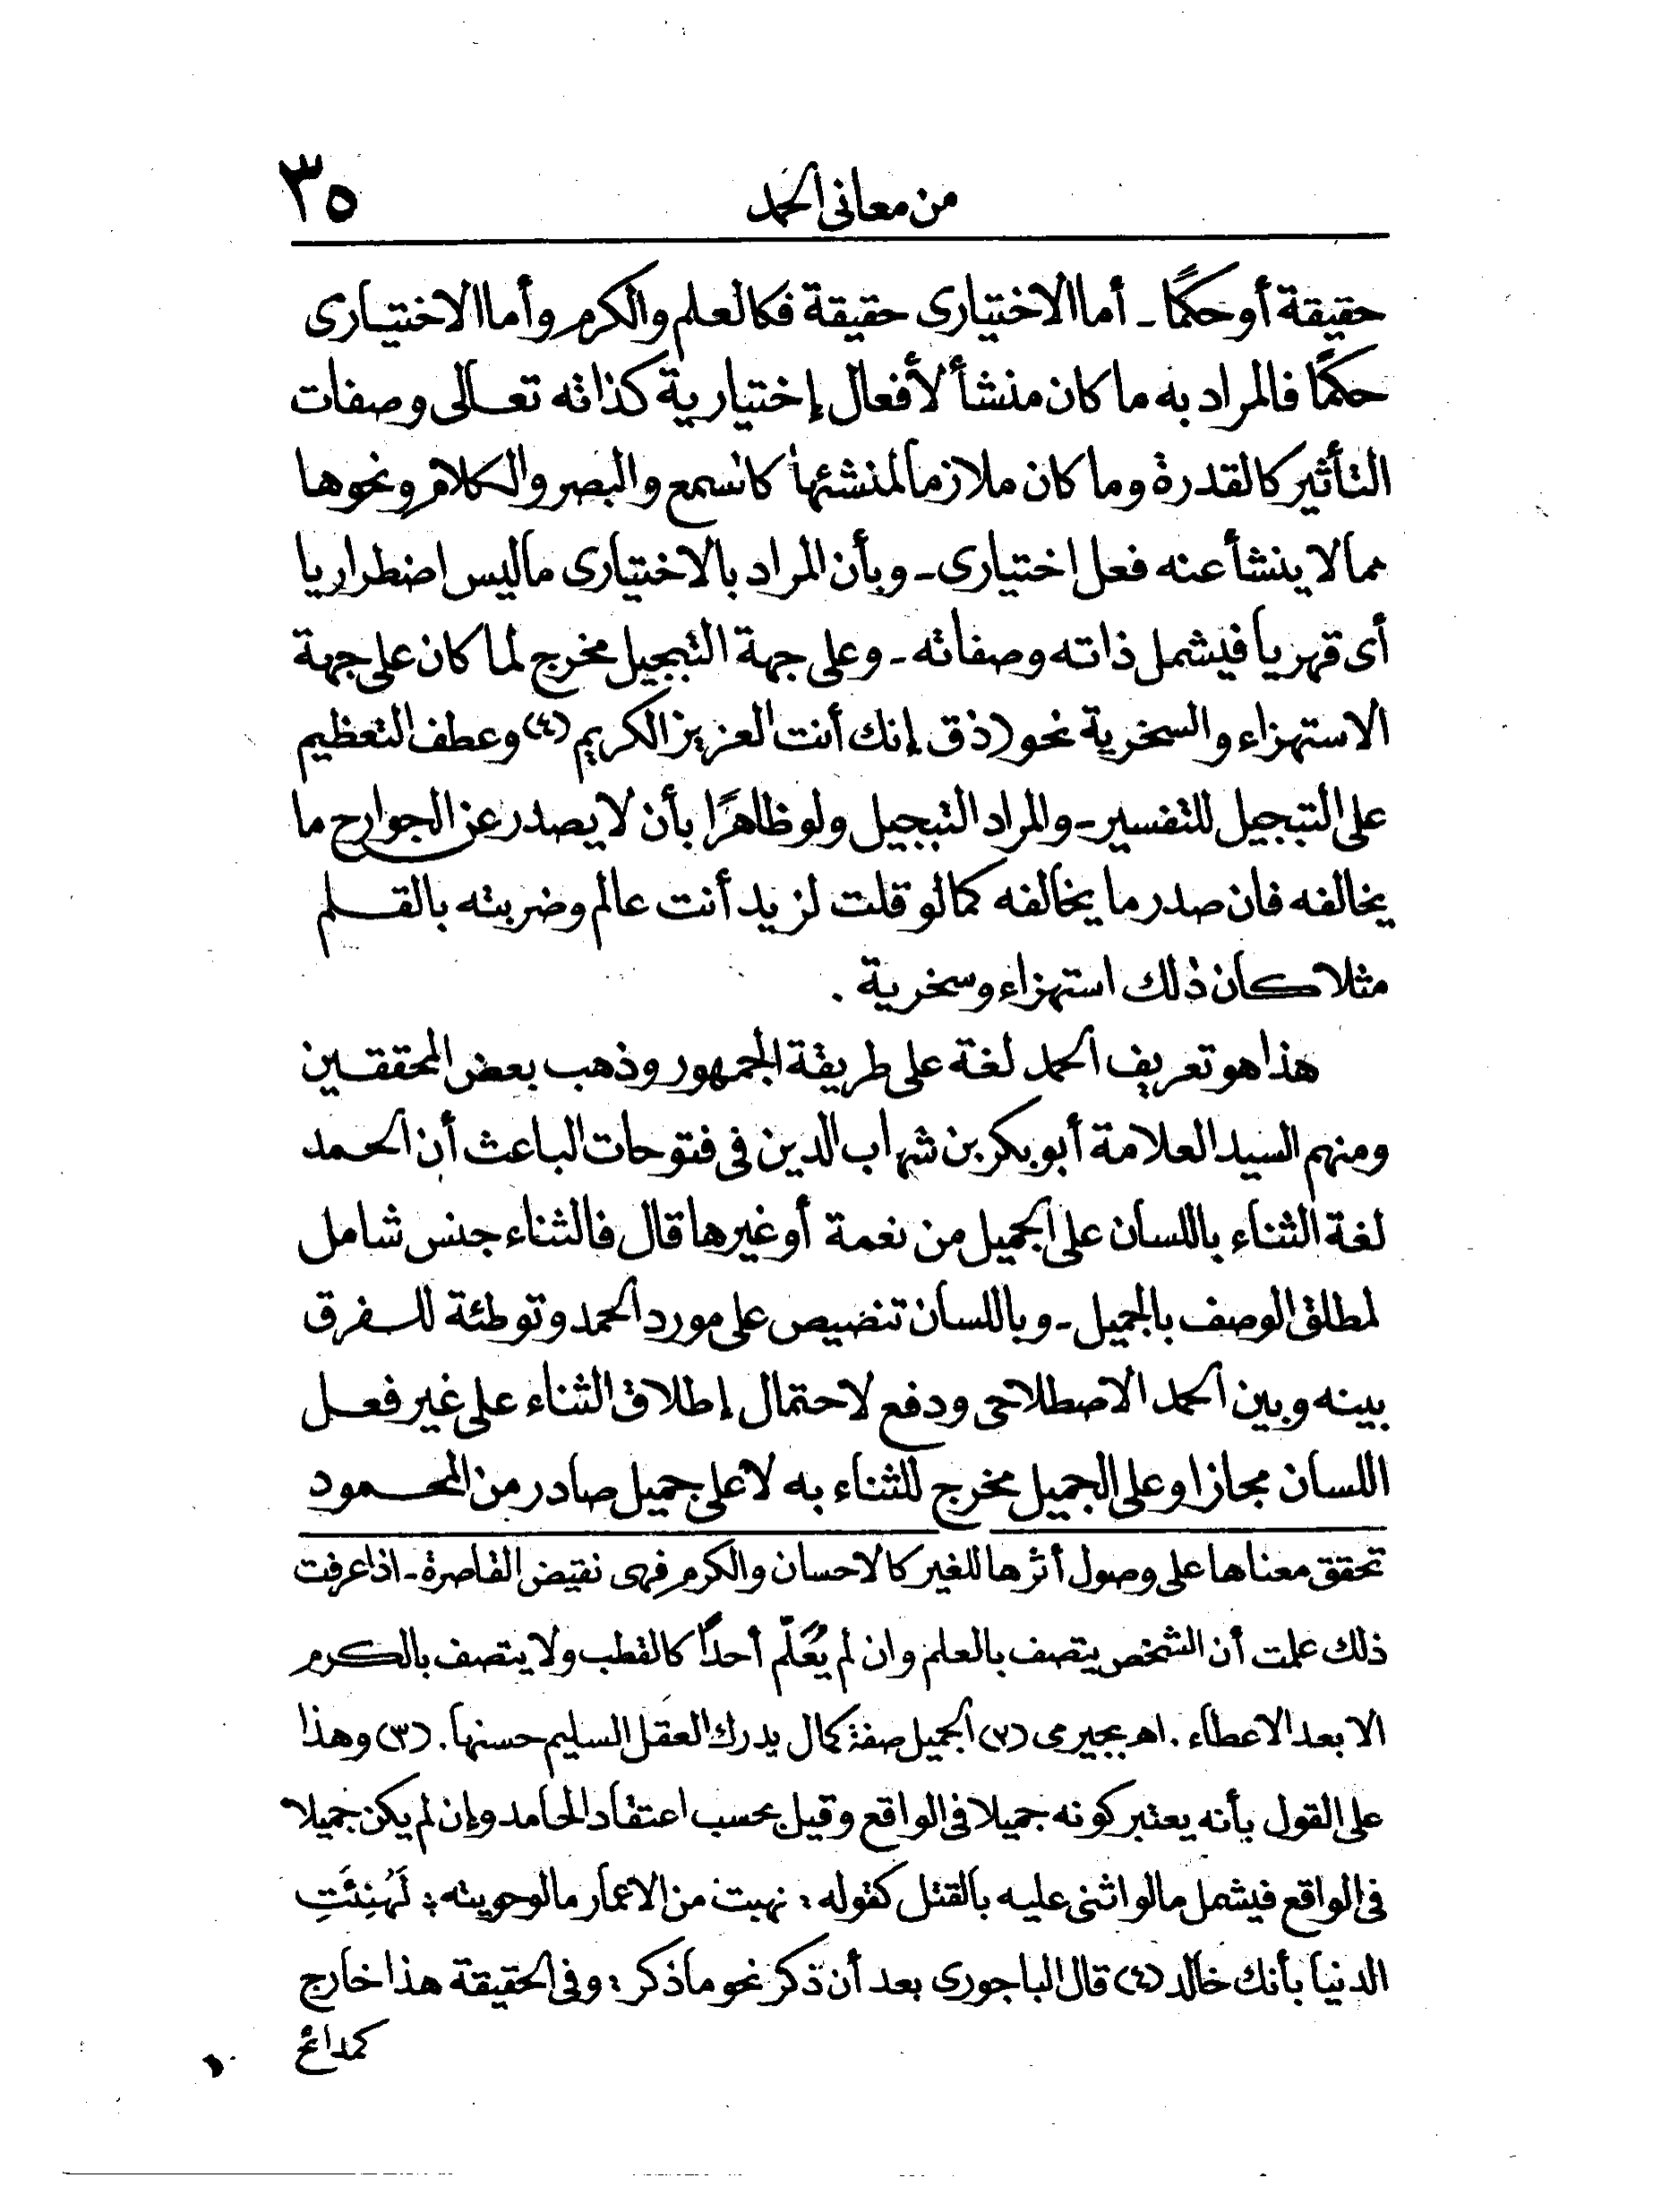 من معانى الحمد ٣٥
حقيقة أو حكمًا ـ أما الاختيارى حقيقة فكالعلم والكرم وأما الاختيارى
حكمًا فالمراد به ما كان منشأ لأفعال إختيارية كذاته تعالى وصفات
التأثير كالقدرة وما كان ملازما لمنشئها كالسمع والبصر والكلام ونحوها
مما لا ينشأ عنه فعل اختيارى ـ وبأن المراد بالاختيارى ماليس اضطراريا
أى قهريا فيشمل ذاته وصفاته ـ وعلى جهة التبجيل مخرج لما كان على جهة
الاستهزاء والسخرية نحو (ذق إنك أنت العزيز الكريم (٤) وعطف التعظيم
على التبجيل للتفسير ـ والمراد التبجيل ولو ظاهرًا بأن لا يصدر عن الجوارح ما
يخالفه فان صدر ما يخالفه كما لو قلت لزيد أنت عالم وضربته بالقلم
مثلا كان ذلك استهزاء وسخرية .
هذا هو تعريف الحمد لغة على طريقة الجمهور وذهب بعض المحققين
ومنهم السيد العلامة أبو بكر بن شهاب الدين فى فتوحات الباعث أن الحمد
لغة الثناء باللسان على الجميل من نعمة أو غيرها قال فالثناء جنس شامل
لمطلق الوصف بالجميل ـ وباللسان تنصيص على مورد الحمد وتوطئة للفرق
بينه وبين الحمد الاصطلاحى ودفع لاحتمال إطلاق الثناء على غير فعل
اللسان مجازا وعلى الجميل مخرج للثناء به لا على جميل صادر من المحمود
تحقق معناها على وصول أثرها للغير كالاحسان والكرم فهى نقيض القاصرة ـ اذا عرفت
ذلك علمت أن الشخص يتصف بالعلم وان لم يُعَلّم أحدًا كالقطب ولا يتصف بالكرم
الا بعد الاعطاء . اهـ بجيرمى (٢) الجميل صفة كمال يدرك العقل السليم حسنها . (٣) وهذا
على القول بأنه يعتبر كونه جميلا فى الواقع وقيل بحسب اعتقاد الحامد وإن لم يكن جميلا
فى الواقع فيشمل مالو اثنى عليه بالقتل كقوله : نهبت من الاعمار مالو حويته : لَهُنِئَتِ
الدنيا بأنك خالد (٤) قال الباجورى بعد أن ذكر نحو ما ذكر : وفى الحقيقة هذا خارج